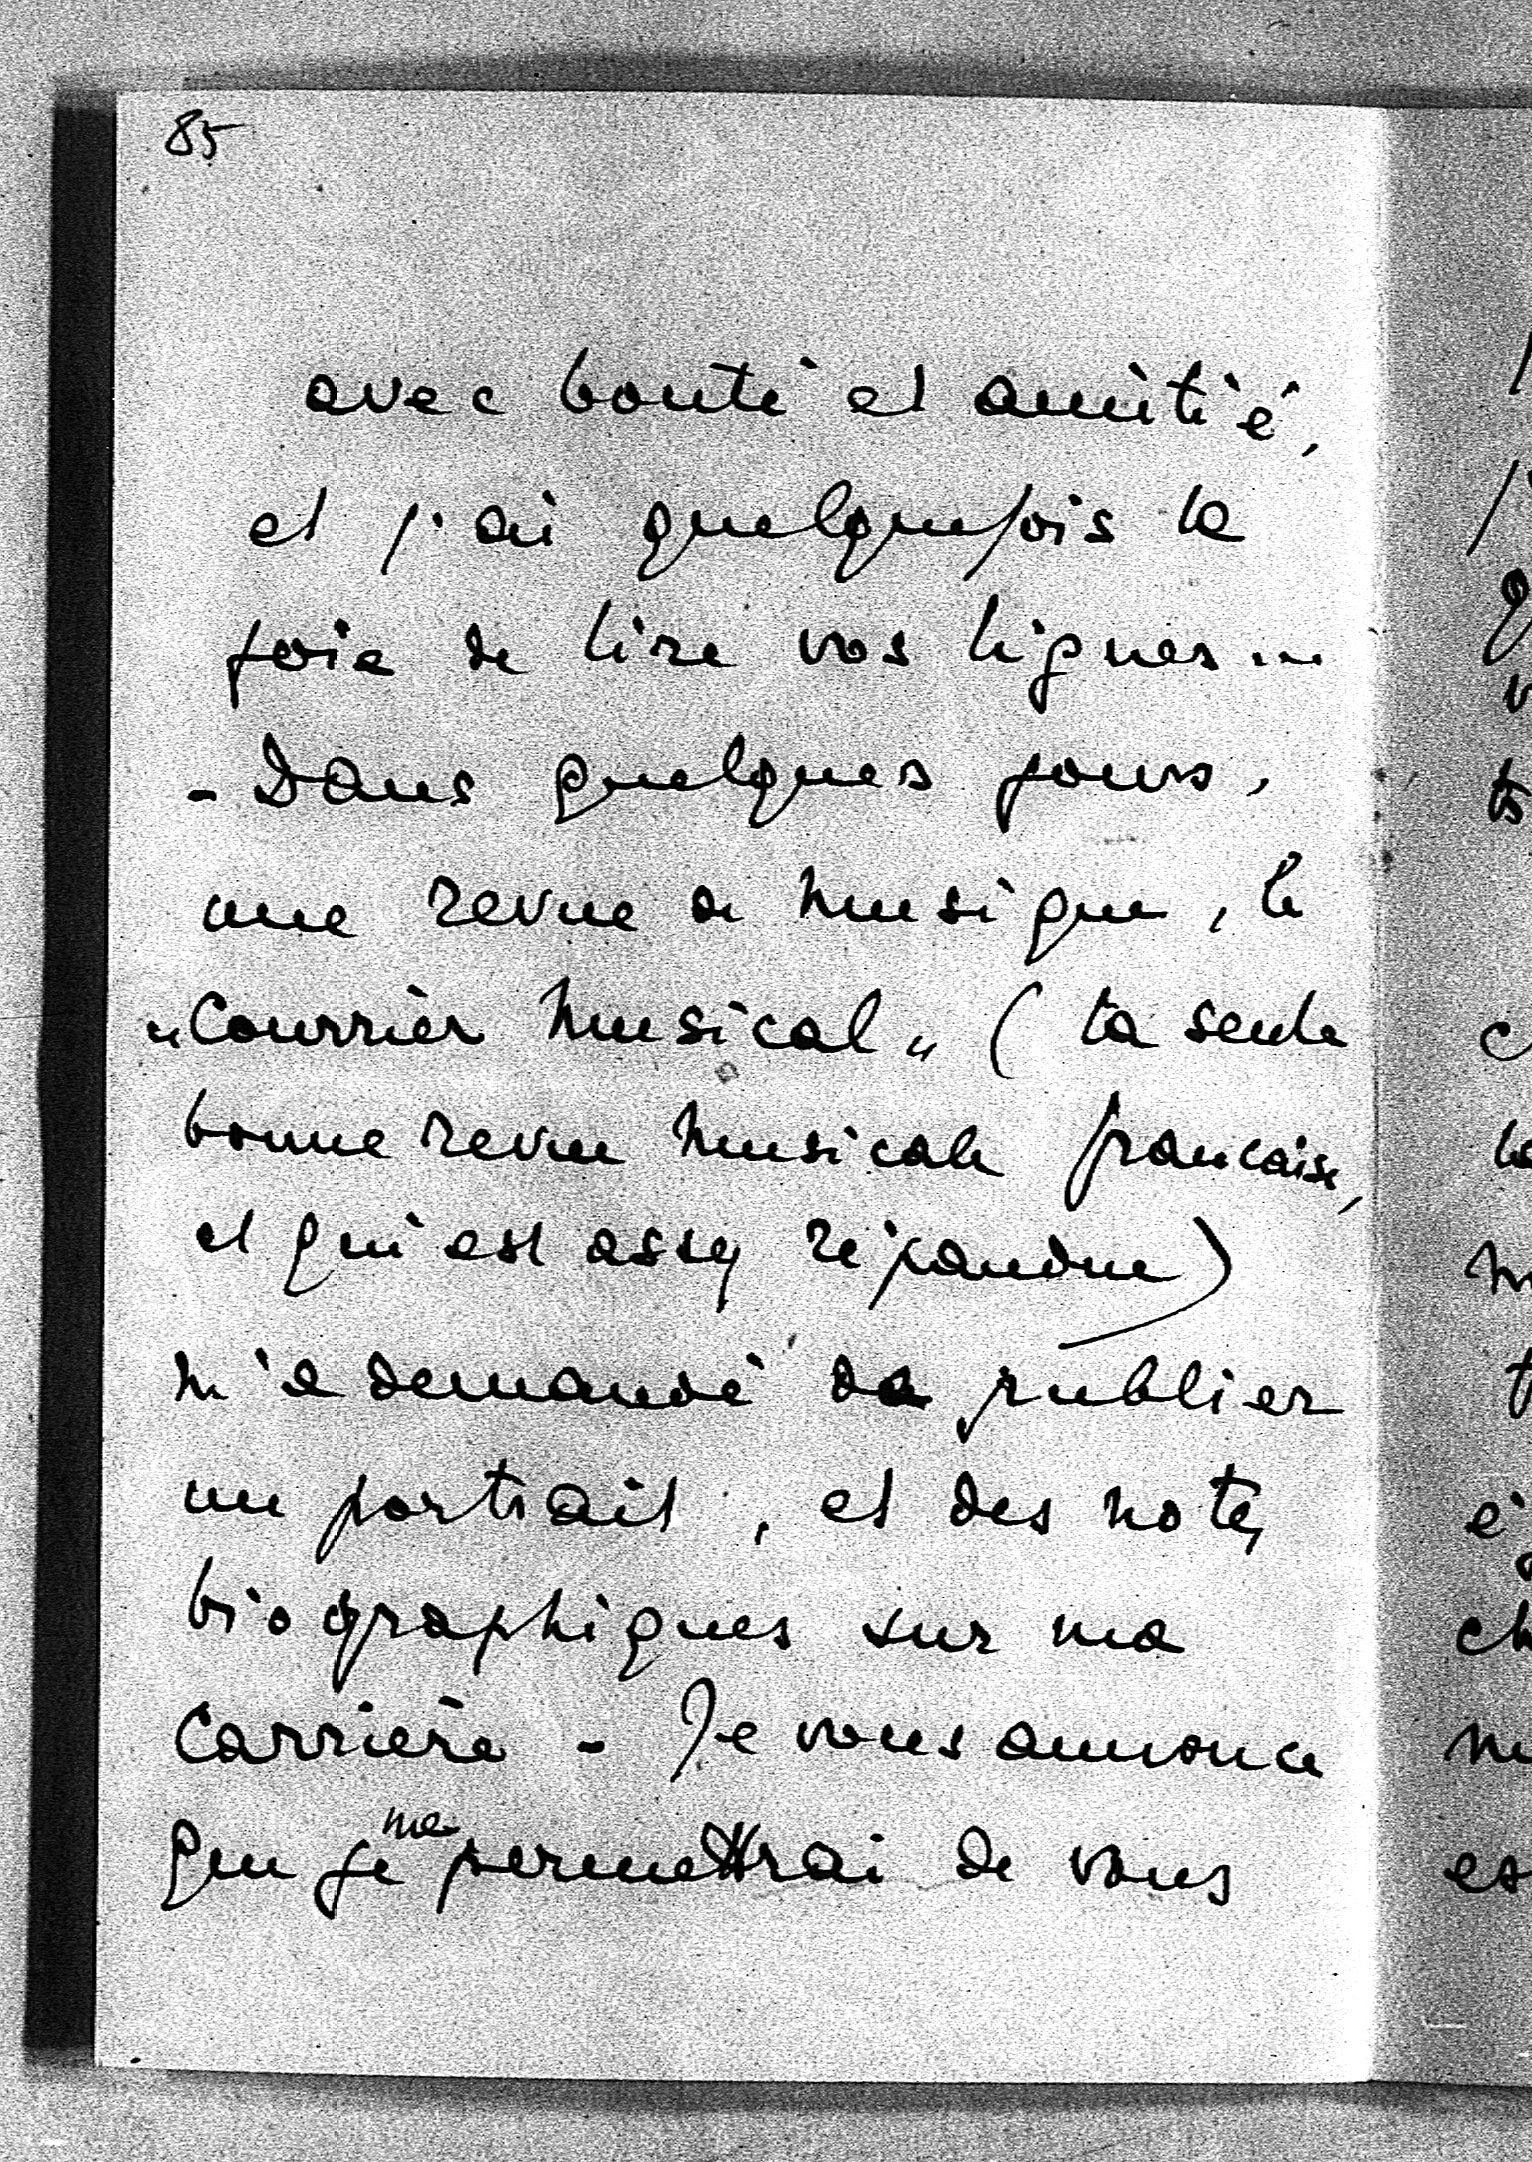 85
avec bonté et amitié,
et j'ai quelquefois la
joie de lire vos lignes ...
- Dans quelques jours,
une revue de musique, le
"Courrier Musical" (la seule
bonne revue musicale francaise,
et qui est assez répandue)
m'a demandé de publier
un portrait, et des notes
biographiques sur ma
carrière - Je vous annonce
que je me permettrai de vous